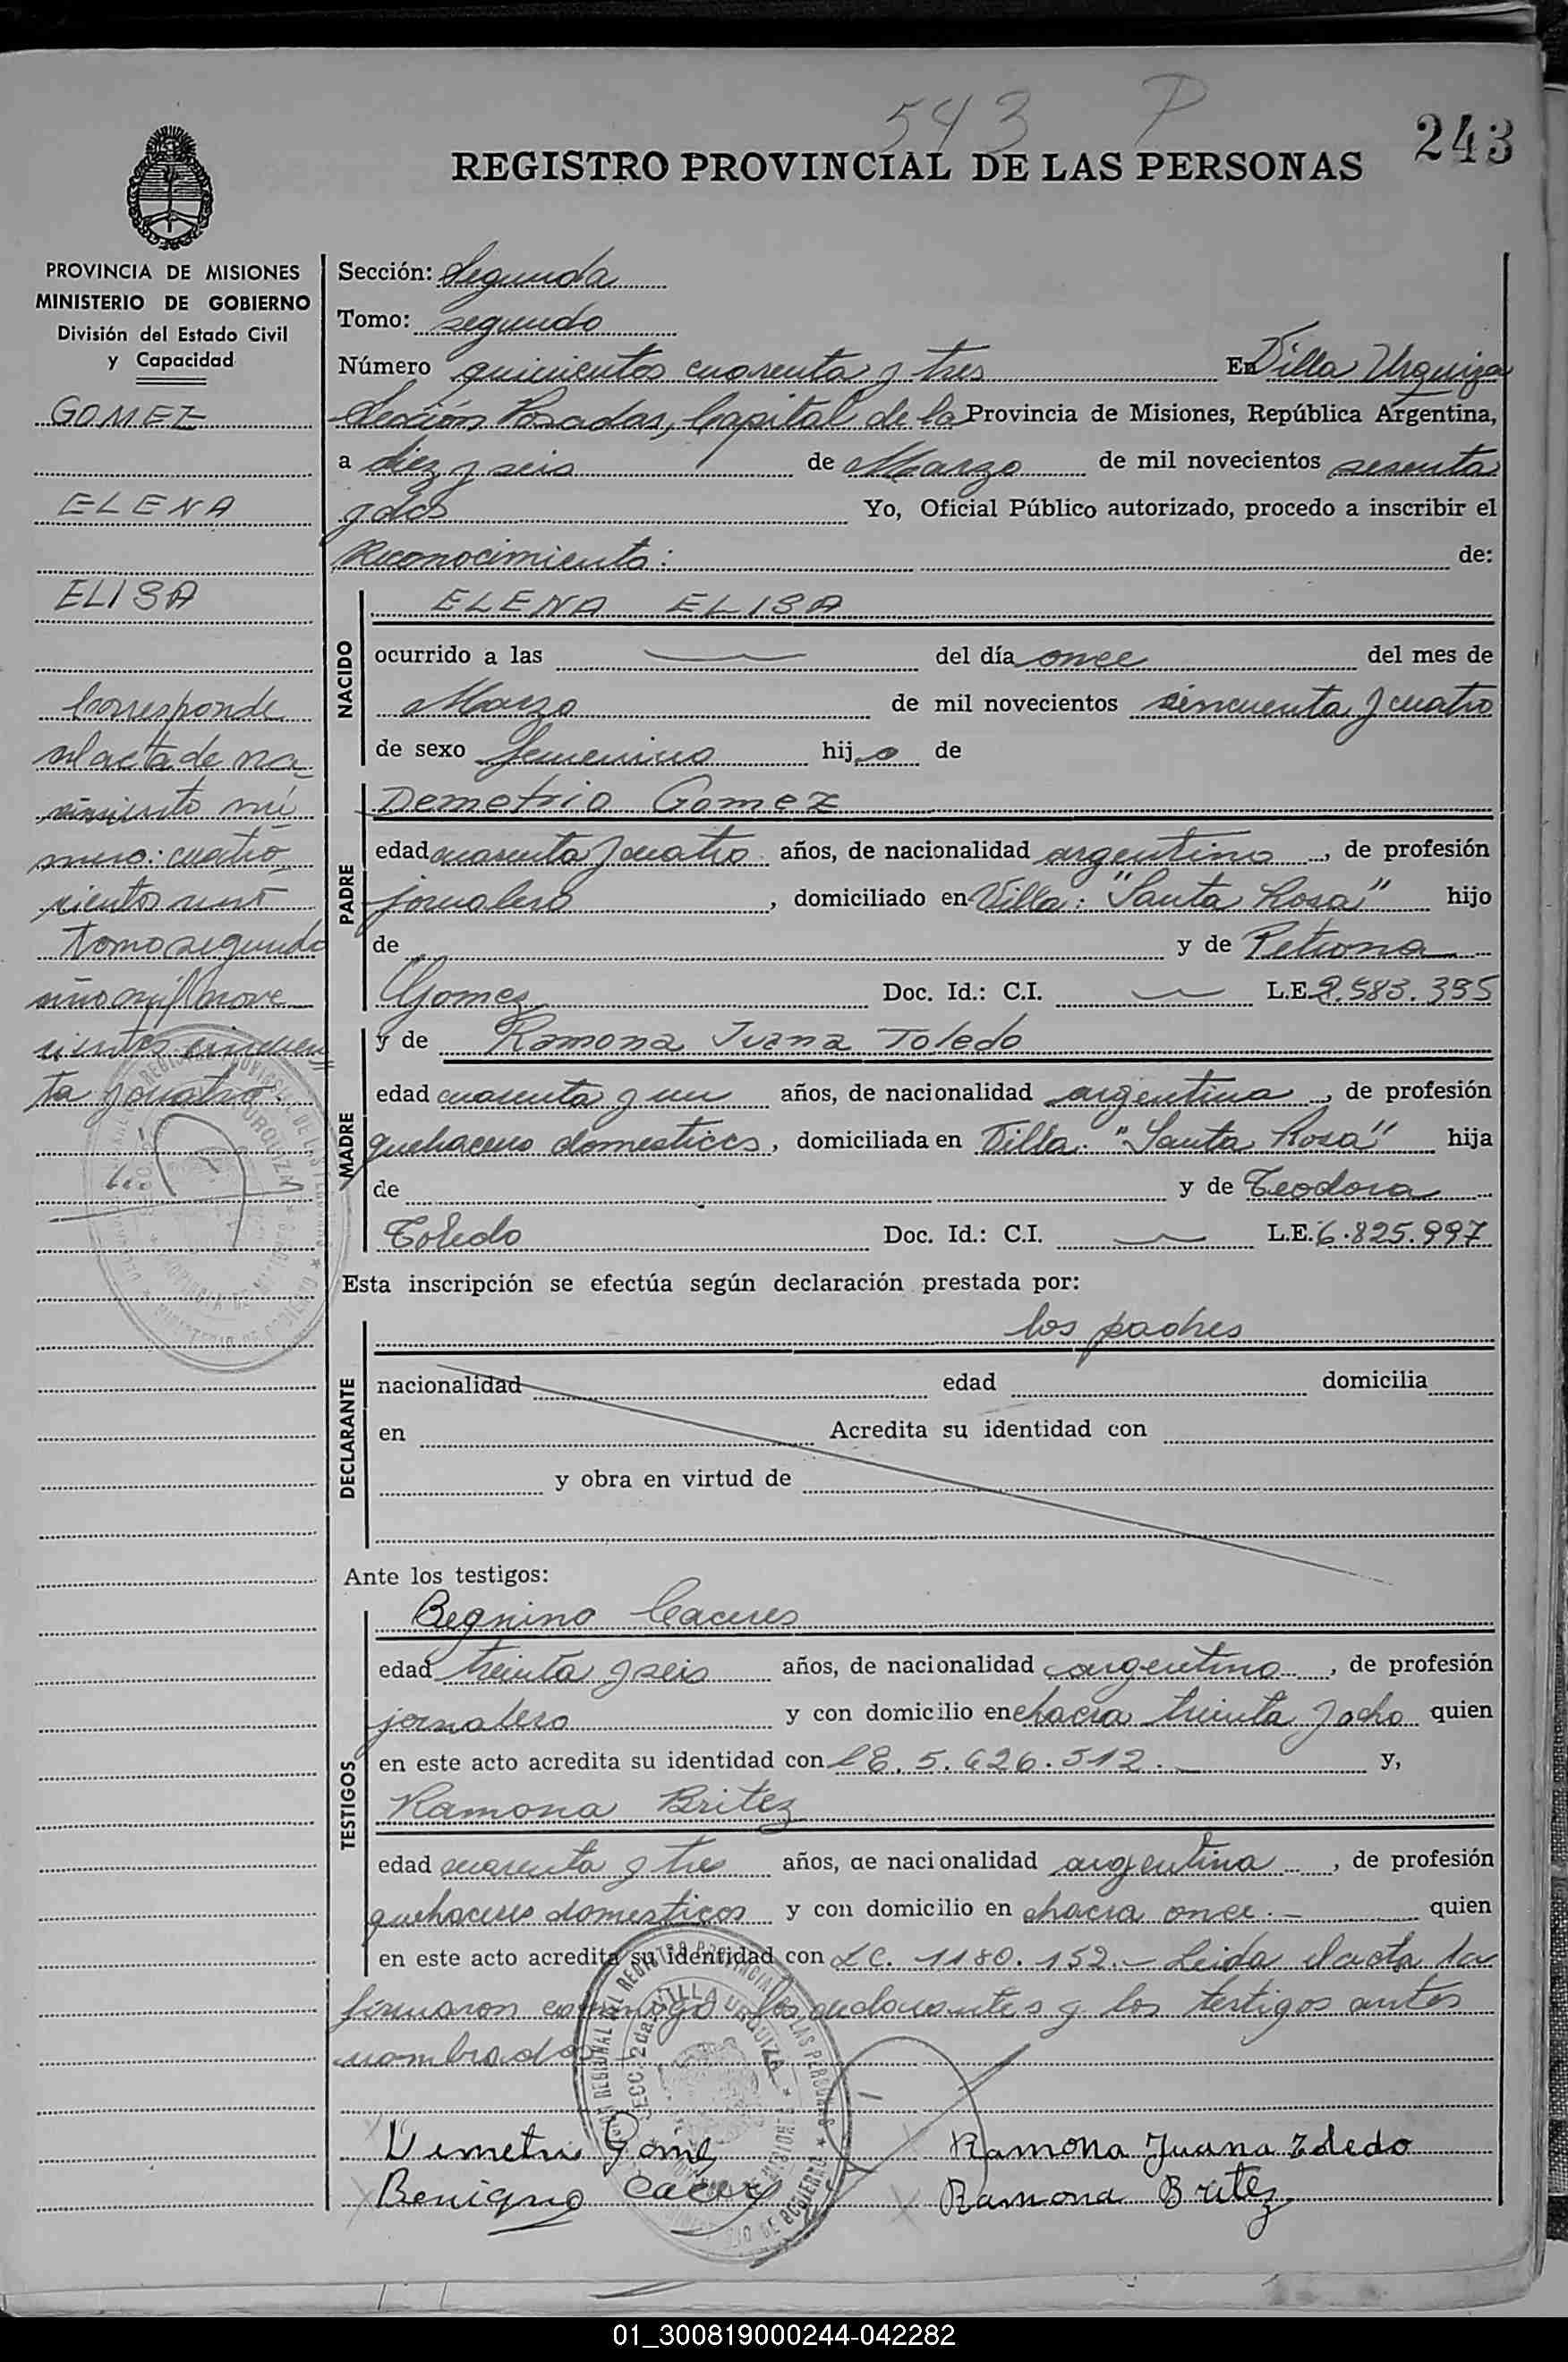 543 P
243
REGISTRO PROVINCIAL DE LAS PERSONAS
PROVINCIA DE MISIONES
MINISTERIO DE GOBIERNO
División del Estado Civil
y Capacidad
GOMEZ
ELENA
ELISA
Corresponde
al acta de na-
cimiento nú
mero: cuatro
cientos uno
Tomo segundo
año mil nove
cientos cincuen
ta y cuatro.
Sección: Segunda
Tomo: segundo
Número quinientos cuarenta y tres En Villa Urquiza
Sección Posadas, Capital de la Provincia de Misiones, República Argentina,
a diez y seis de Marzo de mil novecientos sesenta
y dos Yo, Oficial Público autorizado, procedo a inscribir el
Reconocimiento: de:
NACIDO
ELENA ELISA
ocurrido a las del día once del mes de
Marzo de mil novecientos cincuenta y cuatro
de sexo femenino hija de
PADRE
Demetrio Gomez
edad cuarenta y cuatro años, de nacionalidad argentino, de profesión
jornalero, domiciliado en Villa: "Santa Rosa" hijo
de y de Petrona
Gomez Doc. Id.: C.I. L.E. 2.583.395
MADRE
y de Ramona Juana Toledo
edad cuarenta y un años, de nacionalidad argentina, de profesión
quehaceres domesticos, domiciliada en Villa: "Santa Rosa" hija
de y de Teodora
Toledo Doc. Id.: C.I. L.E. 6.825.997
Esta inscripción se efectúa según declaración prestada por:
DECLARANTE
los padres
nacionalidad edad domicilia
en Acredita su identidad con
y obra en virtud de
Ante los testigos:
TESTIGOS
Begnino Caceres
edad treinta y seis años, de nacionalidad argentino, de profesión
jornalero y con domicilio en chacra treinta y ocho quien
en este acto acredita su identidad con LE. 5.626.512.- y,
Ramona Britez
edad cuarenta y tres años, de nacionalidad argentina, de profesión
quehaceres domesticos y con domicilio en chacra once.- quien
en este acto acredita su identidad con LC. 1180.152.- Leida el acta la
firmaron conmigo los declarantes y los testigos antes
nombrados
SECC. 2da. VILLA URQUIZA
Demetri Gomez Ramona Juana Toledo
Benigno Caceres Ramona Britez
01_300819000244-042282